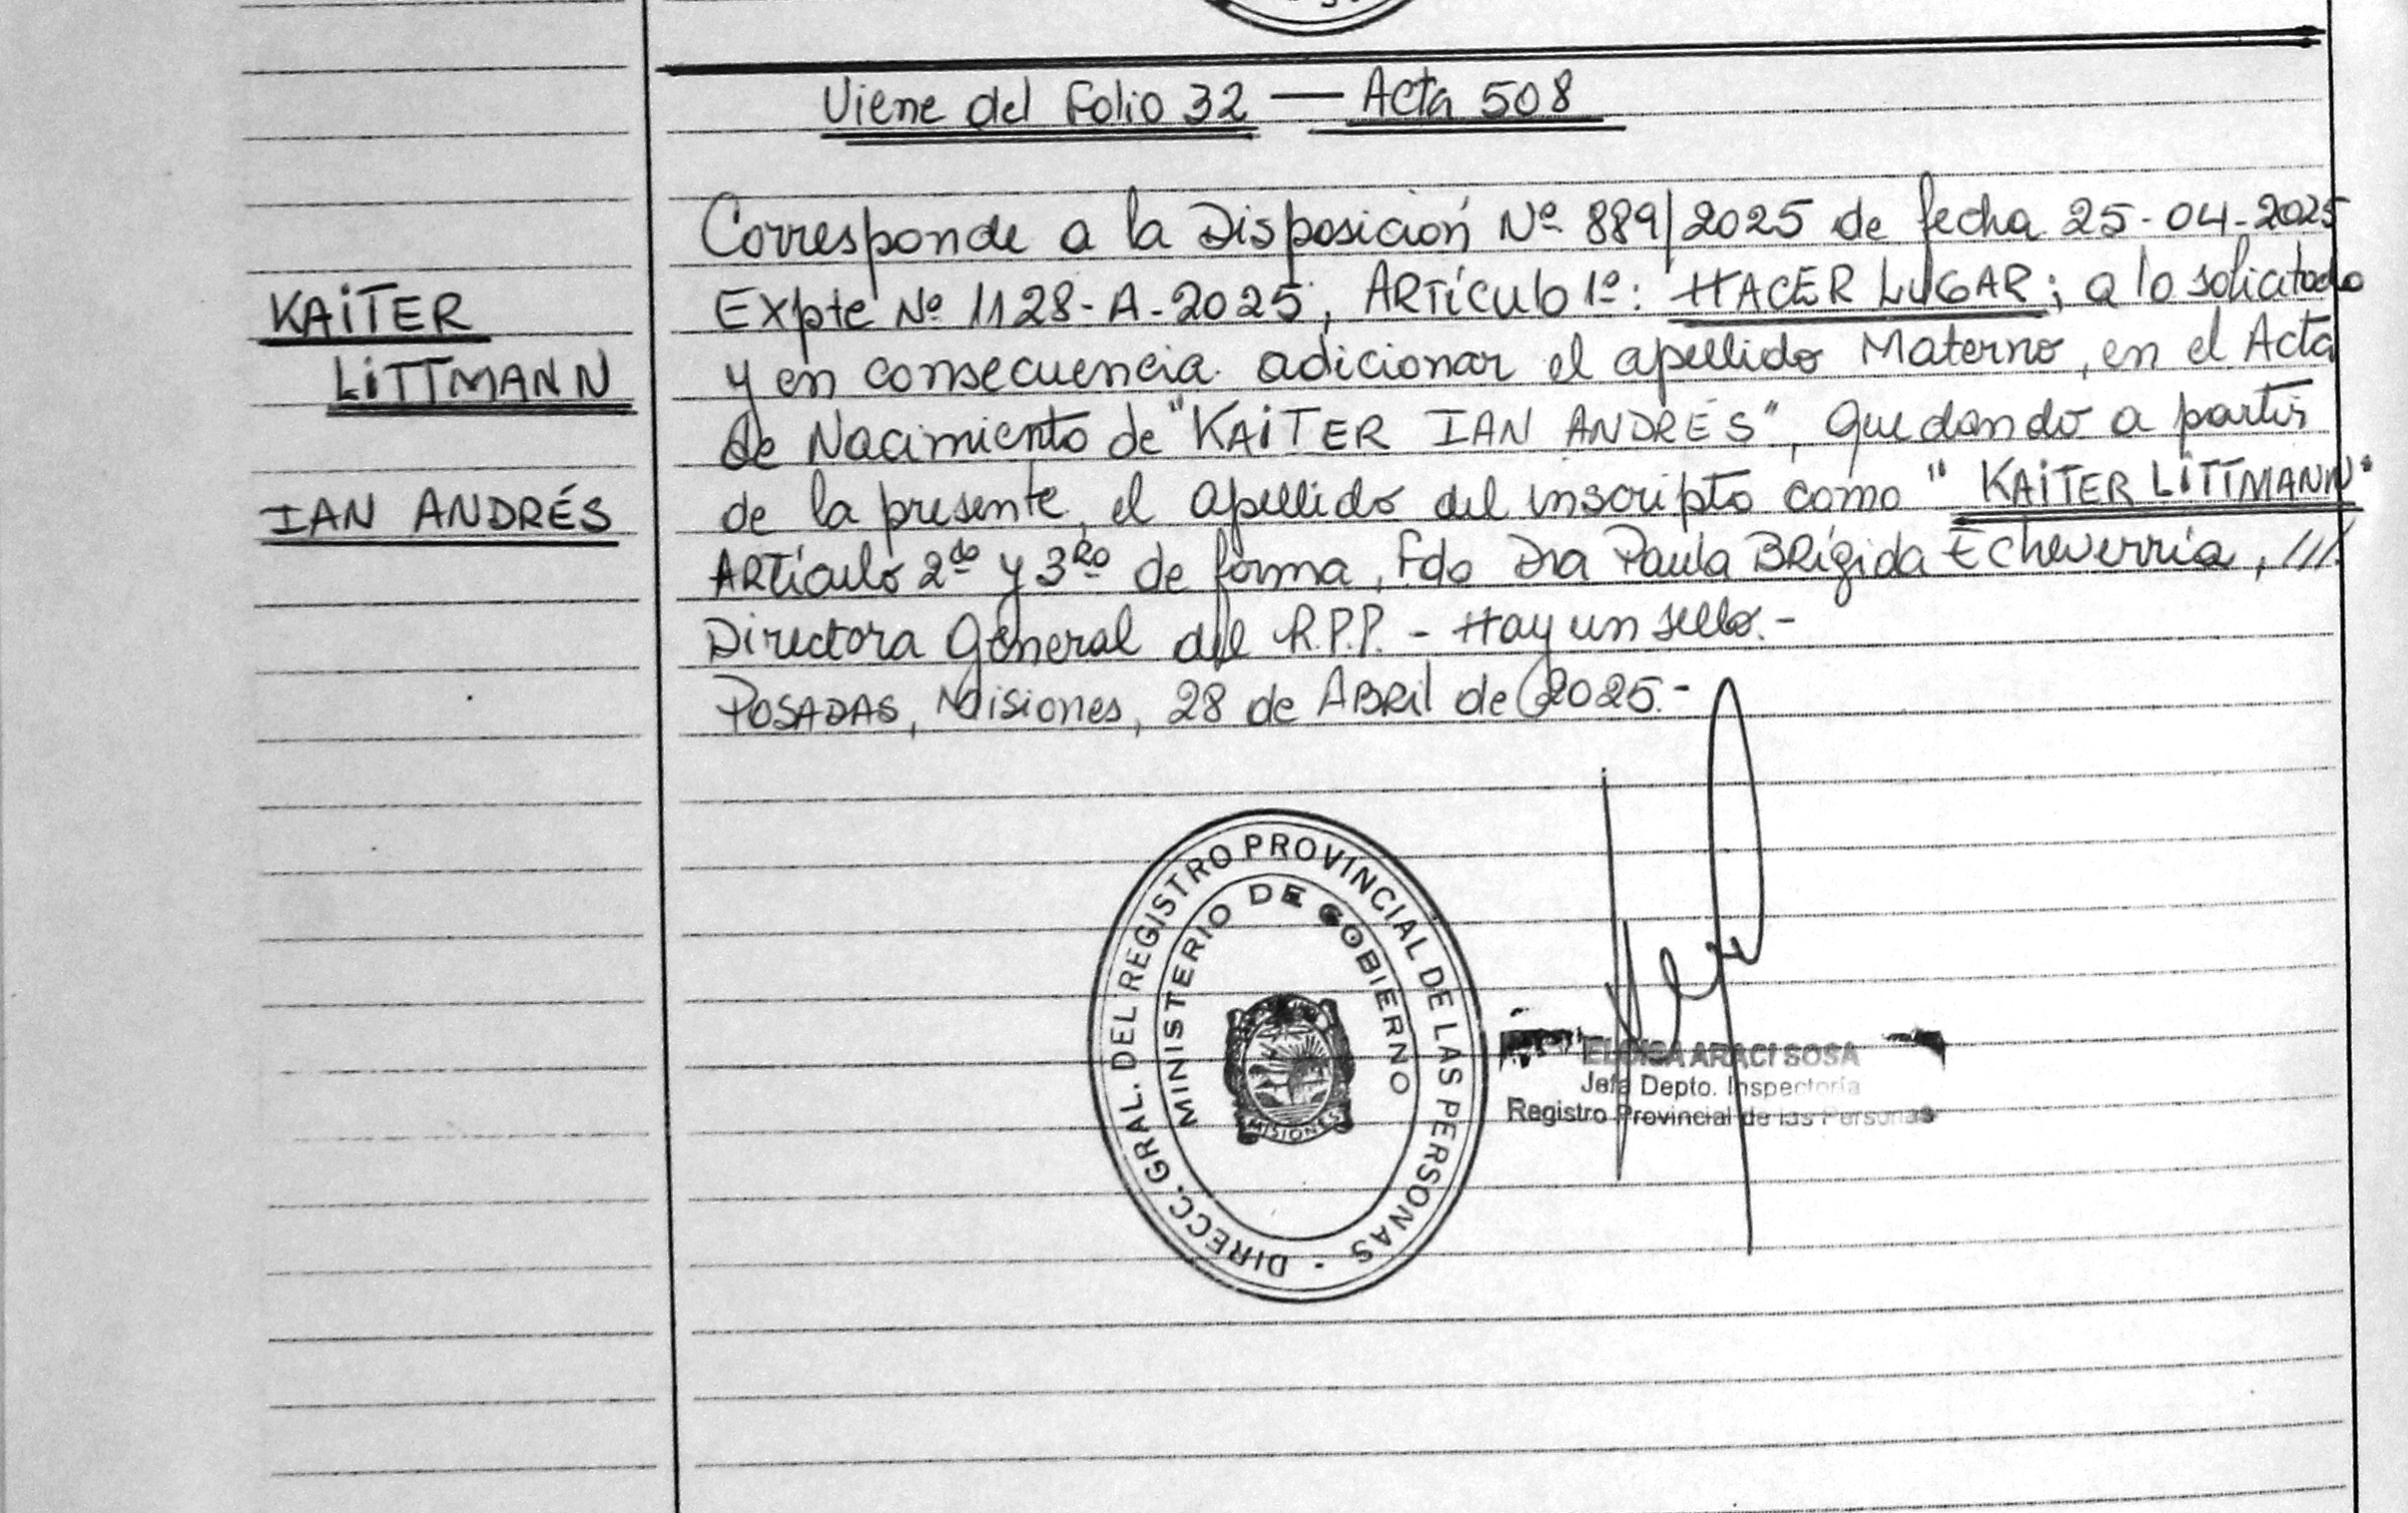 Viene del Folio 32 — Acta 508
KAiTER
LiTTMANN
IAN ANDRÉS
Corresponde a la Disposición Nº 889/2025 de fecha 25-04-2025
Expte Nº 1128-A-2025, ARTículo 1º: HACER LUGAR; a lo solicitado
y en consecuencia adicionar el apellido Materno, en el Acta
de Nacimiento de "KAiTER IAN ANDRÉS", Quedando a partir
de la presente, el apellido del inscripto como "KAiTER LiTTMANN"
ARTículo 2do y 3Ro de forma, Fdo Dra Paula BRígida Echeverría, ///
Directora General del R.P.P. - Hay un sello.-
POSADAS, Misiones, 28 de ABRil de 2025.-
DIRECC. GRAL. DEL REGISTRO PROVINCIAL DE LAS PERSONAS -
MINISTERIO DE GOBIERNO
MISIONES
ELOISA ARACI SOSA
Jefa Depto. Inspectoría
Registro Provincial de las Personas